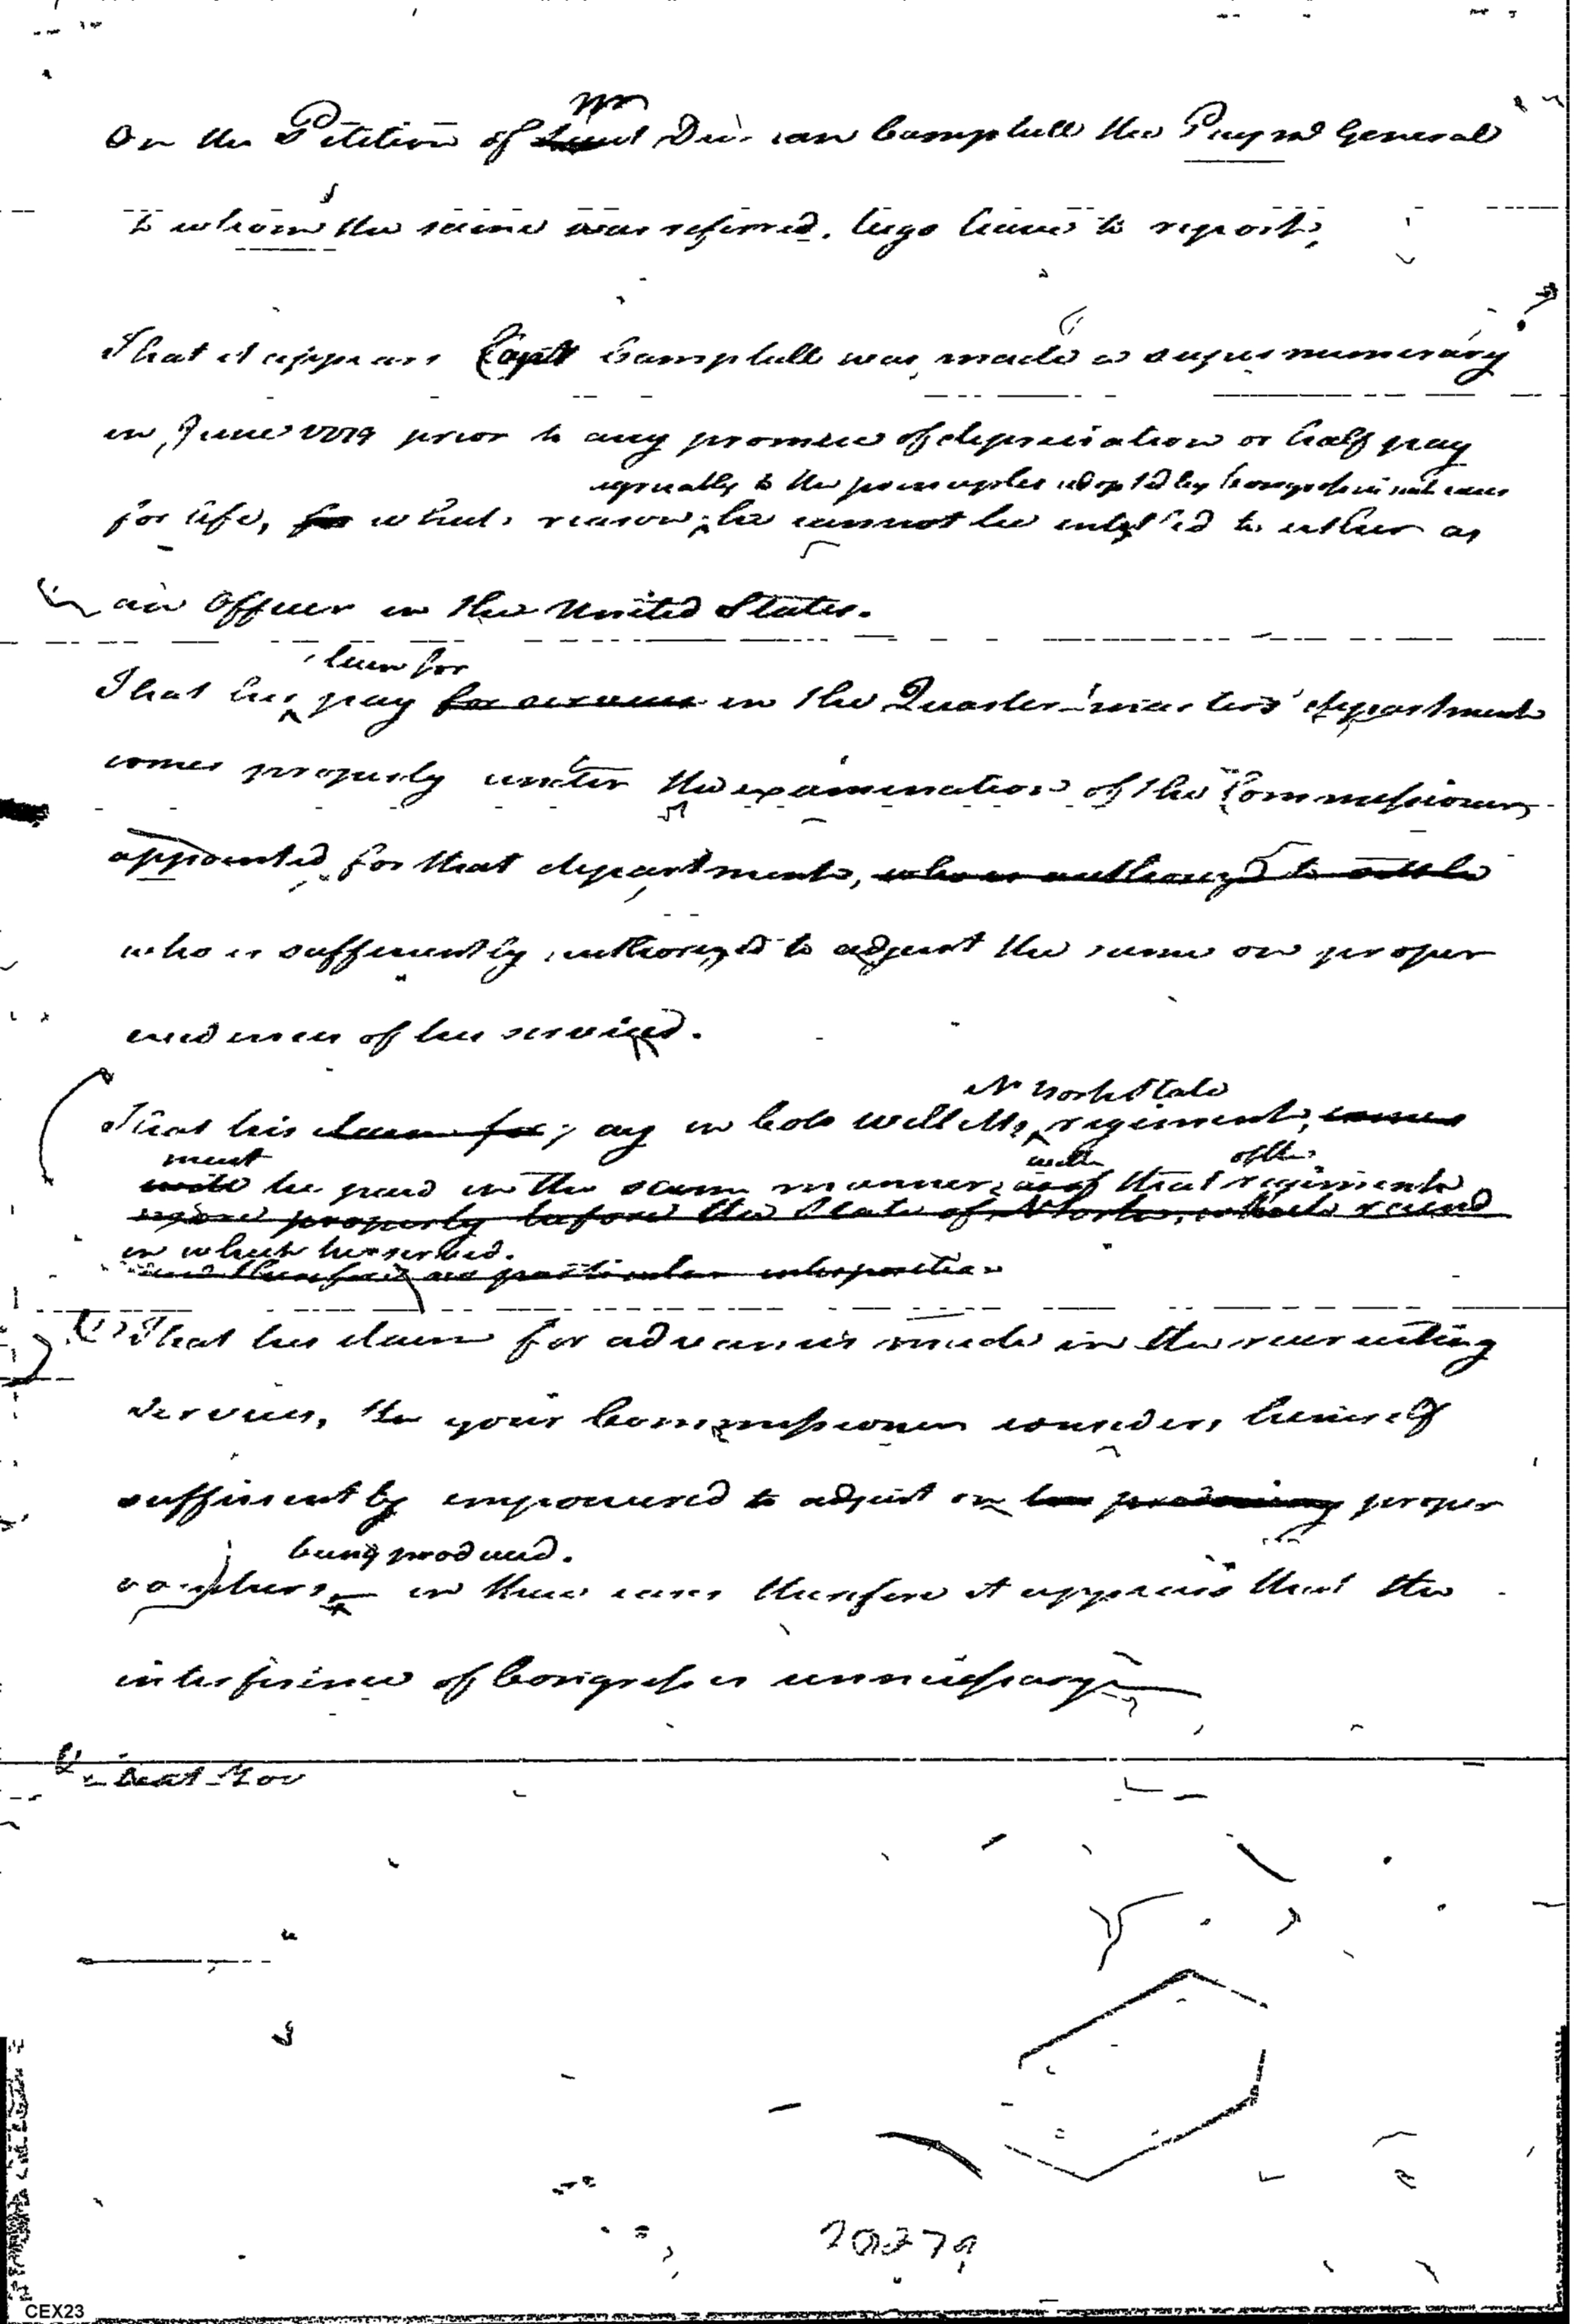 Mr
On the Petition of Lieut Duncan Campbell the Paym General
to whom the same was referred, begs leave to report,
That it appears Capt Campbell was made a supernumerary
in June 1779 prior to any promise of depreciation or half pay
agreeably to the principles adopted by Congress in such cases
for life, for which reason he cannot be entitled to either as
an Officer in the United States.
claim for
That his pay for services in the Quarter-masters' department
comes properly under the examination of the Commissioner
appointed for that department, who is authorized to settle
who is sufficiently authorized to adjust the same on proper
evidences of his services.
N York State
That his claim for pay in Colo Willetts regiment, comes
must with of the
will be paid in the same manner as that regiment
more properly before the State of N York, which raised
in which he served.
and therefore no particular interposition
That his claim for advances made in the recruiting
service, the your Commissioner considers himself
sufficiently empowered to adjust on his producing proper
being produced.
vouchers, in these cases therefore it appears that the
interference of Congress is unnecessary
20279
CEX23